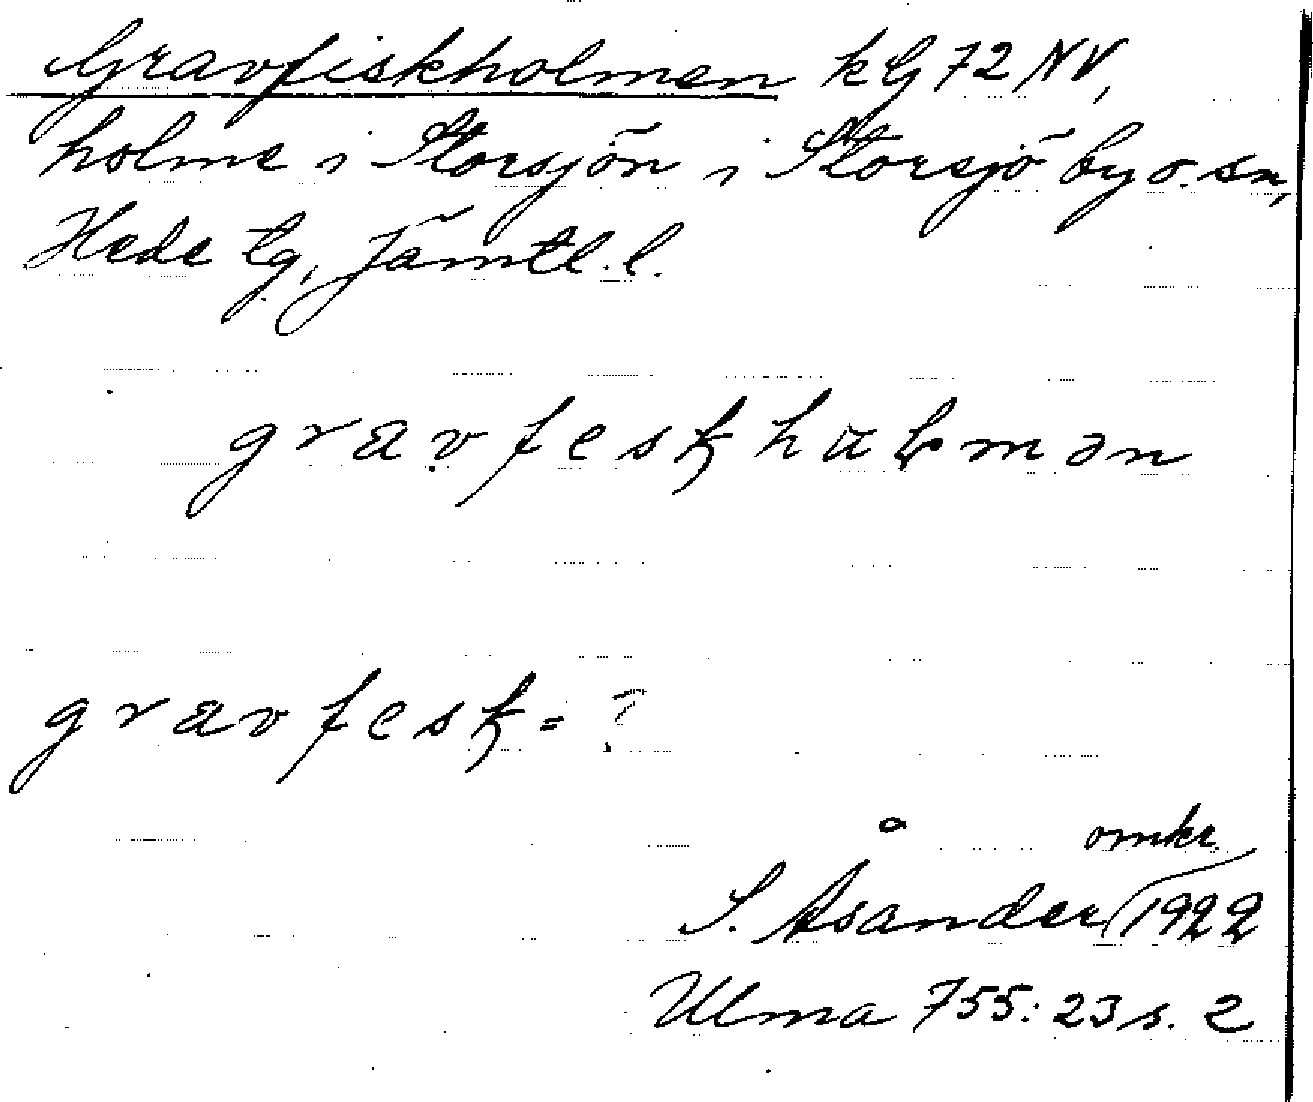 Gravfiskholmen kbl 72 NV,
holme i Storsjön i Storsjö by o. sn,
Hede tg, Jämtl. l.
gravfeskhaɫmən
gravfesk = ?
omkr.
S. Åsander 1922
Ulma 755:23 s. 2